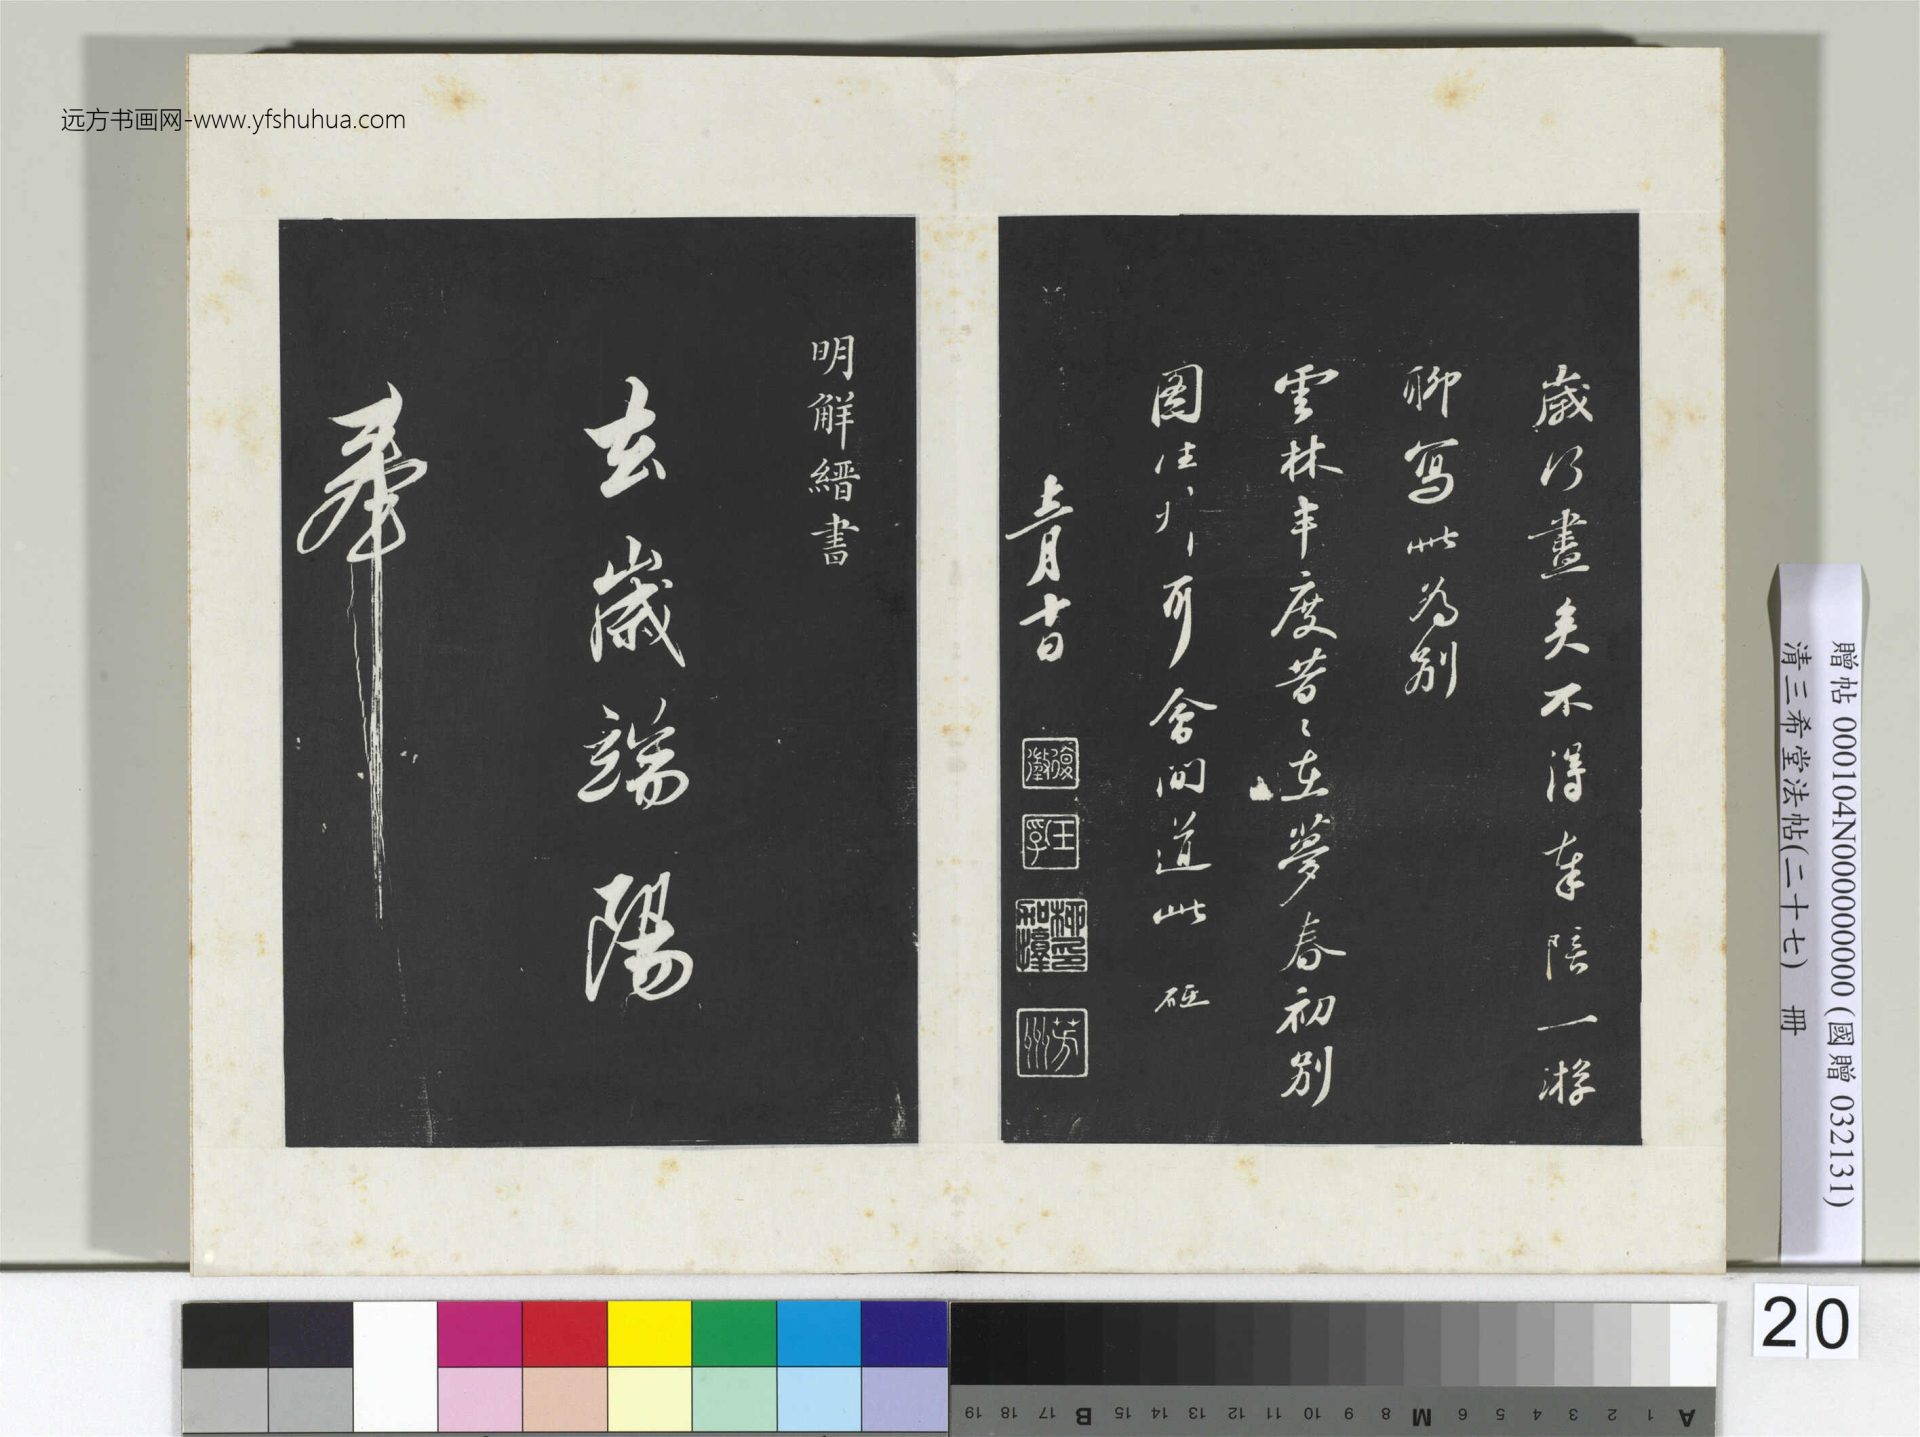 远方书画网-www.yfshuhua.com
歲行盡矣不得奉陪一游
聊写此为别
雲林丰度昔〻在夢春初别
图往可會间道此
十日
明解縉書
玄歲端陽
奉
贈帖 000104N000000000 (國贈 032131)
清三希堂法帖(二十七) 冊
20
A 1 2 3 4 5 6 M 8 9 10 11 12 13 14 15 B 17 18 19